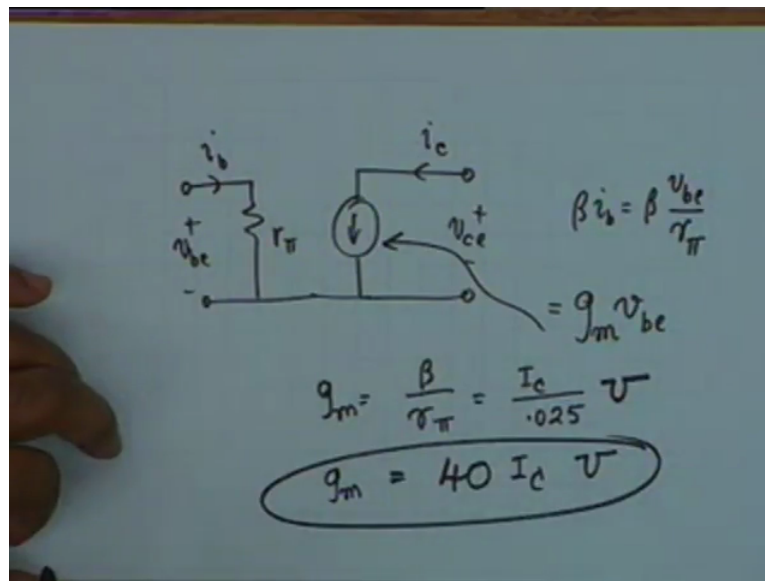 i_b
i_c
+
v_be
-
r_π
v_ce
+
-
β i_b = β v_be / r_π
= g_m v_be
g_m = β / r_π = I_c / .025 ℧
g_m = 40 I_c ℧